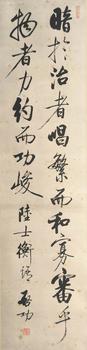 暗於治者唱繁而和寡審乎
物者力約而功峻 陸士衡語 启功